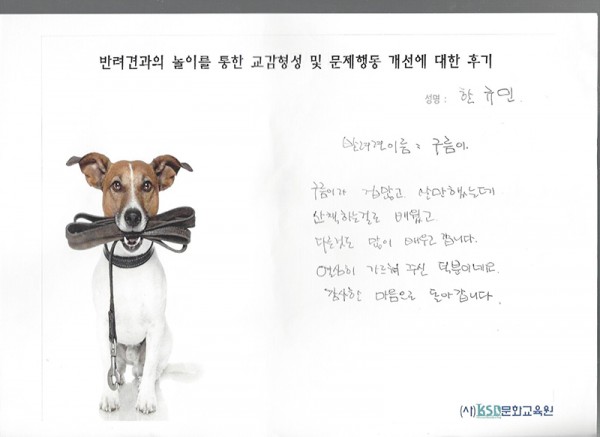 반려견과의 놀이를 통한 교감형성 및 문제행동 개선에 대한 후기
성명 : 한 규민
반려견이름 : 구름이.
구름이가 겁많고 산만했는데
산책하는걸로 배웠고
다른것도 많이 배우고 갑니다.
열심히 가르쳐 주신 덕분이네요.
감사한 마음으로 돌아갑니다.
(사)KSD문화교육원